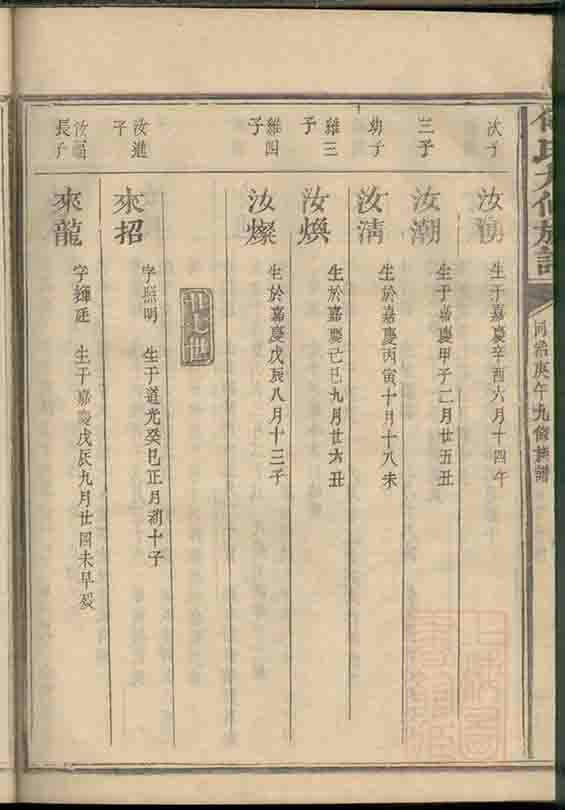 氏九修族譜
同治庚午九修族譜
次子
汝
生于嘉慶辛酉六月十四午
三子
汝潮
生于嘉慶甲子二月廿五丑
幼子
汝清
生於嘉慶丙寅十月十八未
繼三子
汝煥
生於嘉慶己巳九月廿六丑
繼四子
汝燦
生於嘉慶戊辰八月十三子
廿七世
汝進子
來招
字照明 生于道光癸巳正月初十子
汝 長子
來龍
字輝廷 生于嘉慶戊辰九月廿四未早歿
上海圖書館藏